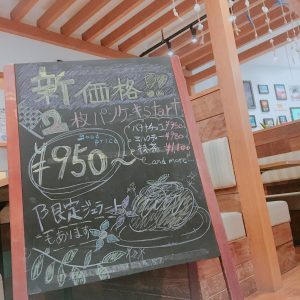 新価格!!
2枚パンケーキstart
good price
¥950
・バナナチョコ¥950
・ミルクティー¥950
・抹茶¥1,100
and more
限定ジェラート
〜もあります